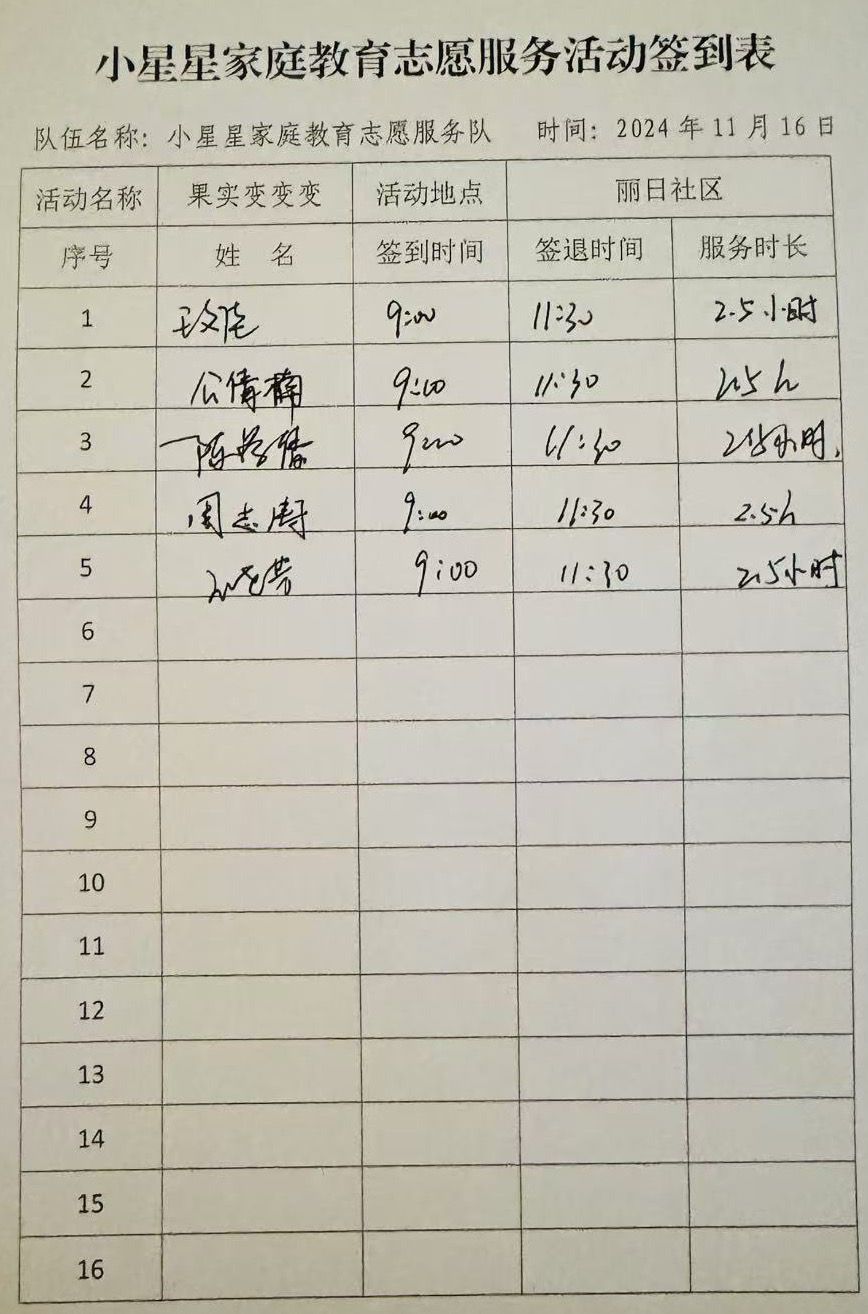 小星星家庭教育志愿服务活动签到表
队伍名称：小星星家庭教育志愿服务队 时间：2024年11月16日
活动名称 果实变变变 活动地点 丽日社区
序号 姓 名 签到时间 签退时间 服务时长
1 9:00 11:30 2.5小时
2 公倩楠 9:00 11:30 2.5h
3 9:00 11:30 2.5小时.
4 周志涛 9:00 11:30 2.5h
5 9:00 11:30 2.5小时
6
7
8
9
10
11
12
13
14
15
16